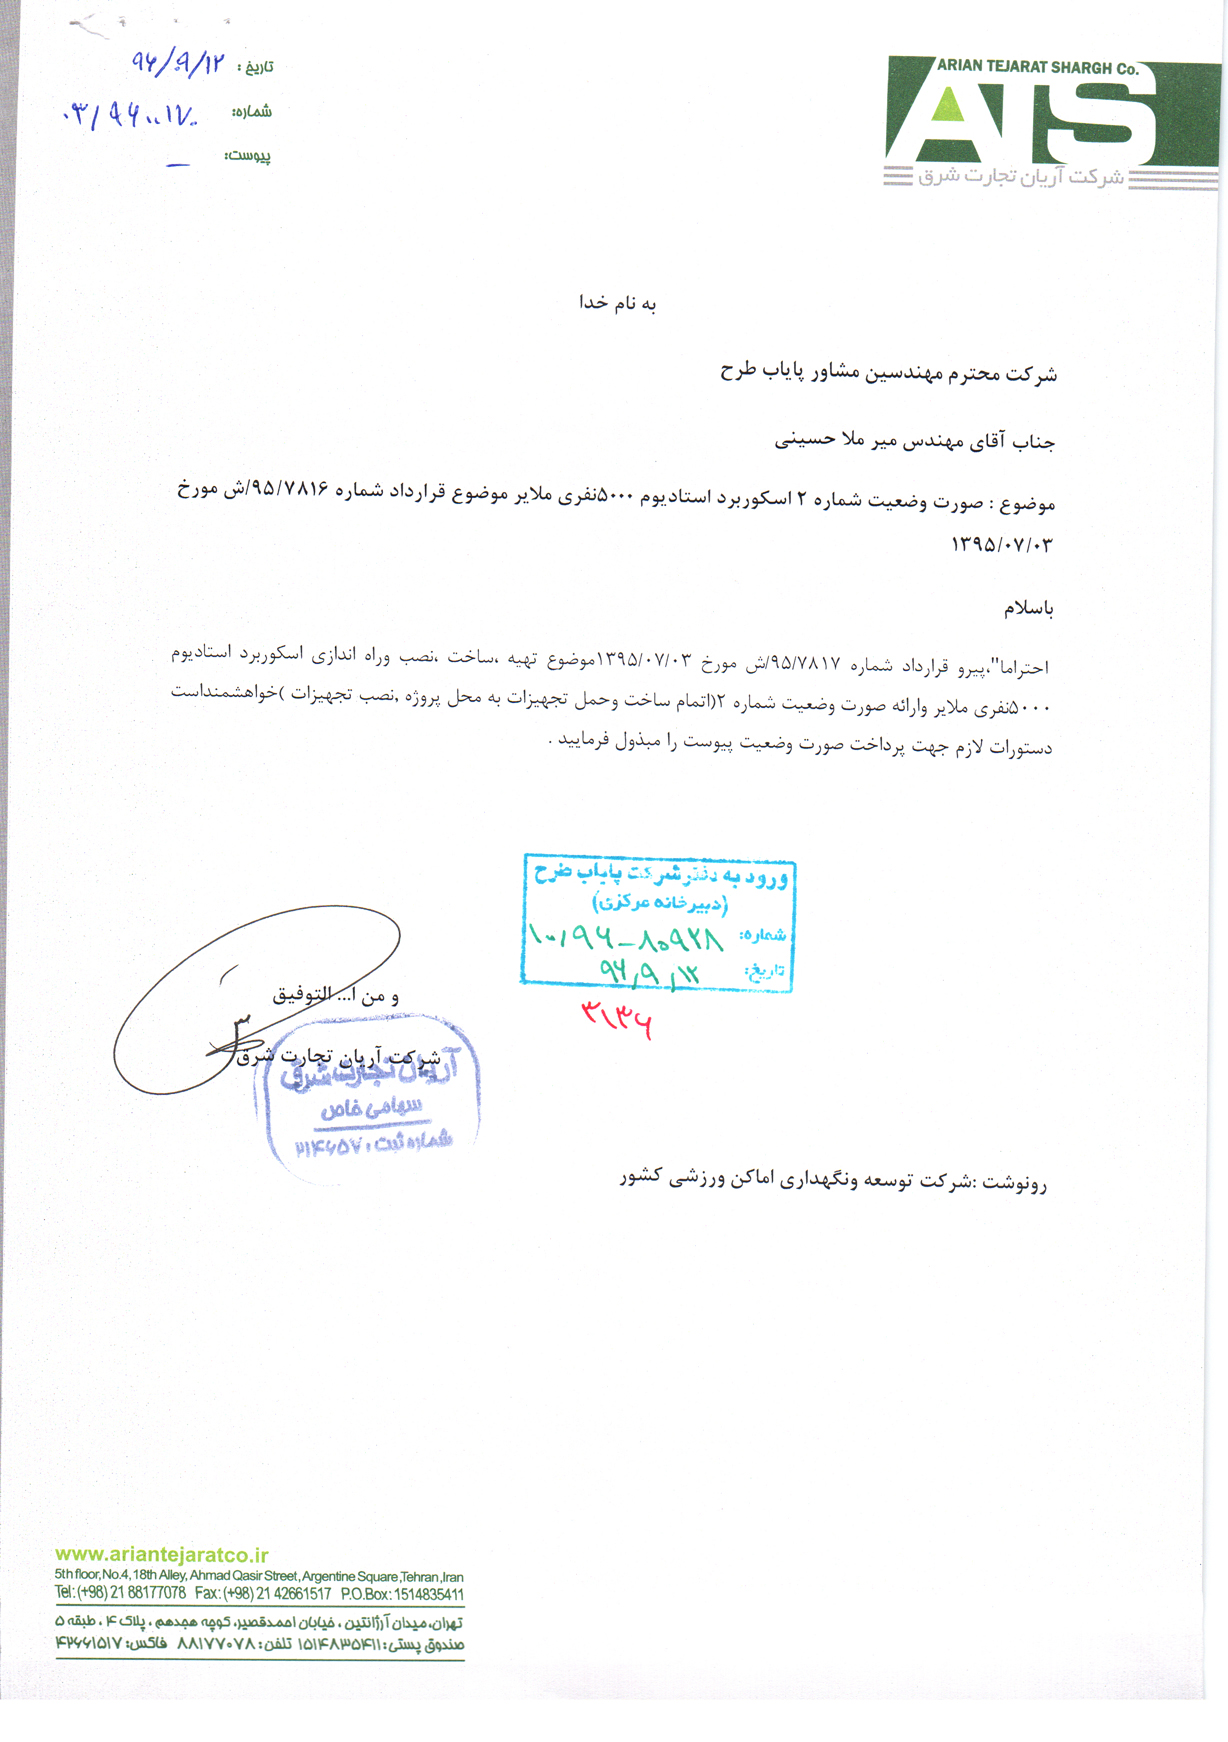 ARIAN TEJARAT SHARGH Co.
ATS
شرکت آریان تجارت شرق
تاریخ : ۹۶/۹/۱۲
شماره: ۰۳/۹۶۰۰۱۷۰
پیوست: –
به نام خدا
شرکت محترم مهندسین مشاور پایاب طرح
جناب آقای مهندس میر ملا حسینی
موضوع : صورت وضعیت شماره ۲ اسکوربرد استادیوم ۵۰۰۰نفری ملایر موضوع قرارداد شماره ۹۵/۷۸۱۶/ش مورخ
۱۳۹۵/۰۷/۰۳
باسلام
احتراما"،پیرو قرارداد شماره ۹۵/۷۸۱۷/ش مورخ ۱۳۹۵/۰۷/۰۳موضوع تهیه ،ساخت ،نصب وراه اندازی اسکوربرد استادیوم
۵۰۰۰نفری ملایر وارائه صورت وضعیت شماره ۲(اتمام ساخت وحمل تجهیزات به محل پروژه ,نصب تجهیزات )خواهشمنداست
دستورات لازم جهت پرداخت صورت وضعیت پیوست را مبذول فرمایید .
ورود به دفتر شرکت پایاب طرح
(دبیرخانه مرکزی)
شماره: ۱۰/۹۶-۸۰۹۲۸
تاریخ: ۹۶/۹/۱۲
۳۱۳۶
و من ا... التوفیق
شرکت آریان تجارت شرق
آریان تجارت شرق
سهامی خاص
شماره ثبت: ۲۱۴۶۵۷
رونوشت :شرکت توسعه ونگهداری اماکن ورزشی کشور
www.ariantejaratco.ir
5th floor, No.4, 18th Alley, Ahmad Qasir Street, Argentine Square, Tehran, Iran
Tel: (+98) 21 88177078 Fax: (+98) 21 42661517 P.O.Box: 1514835411
تهران، میدان آرژانتین ، خیابان احمدقصیر، کوچه هجدهم ، پلاک ۴ ، طبقه ۵
صندوق پستی: ۱۵۱۴۸۳۵۴۱۱ تلفن: ۸۸۱۷۷۰۷۸ فاکس: ۴۲۶۶۱۵۱۷